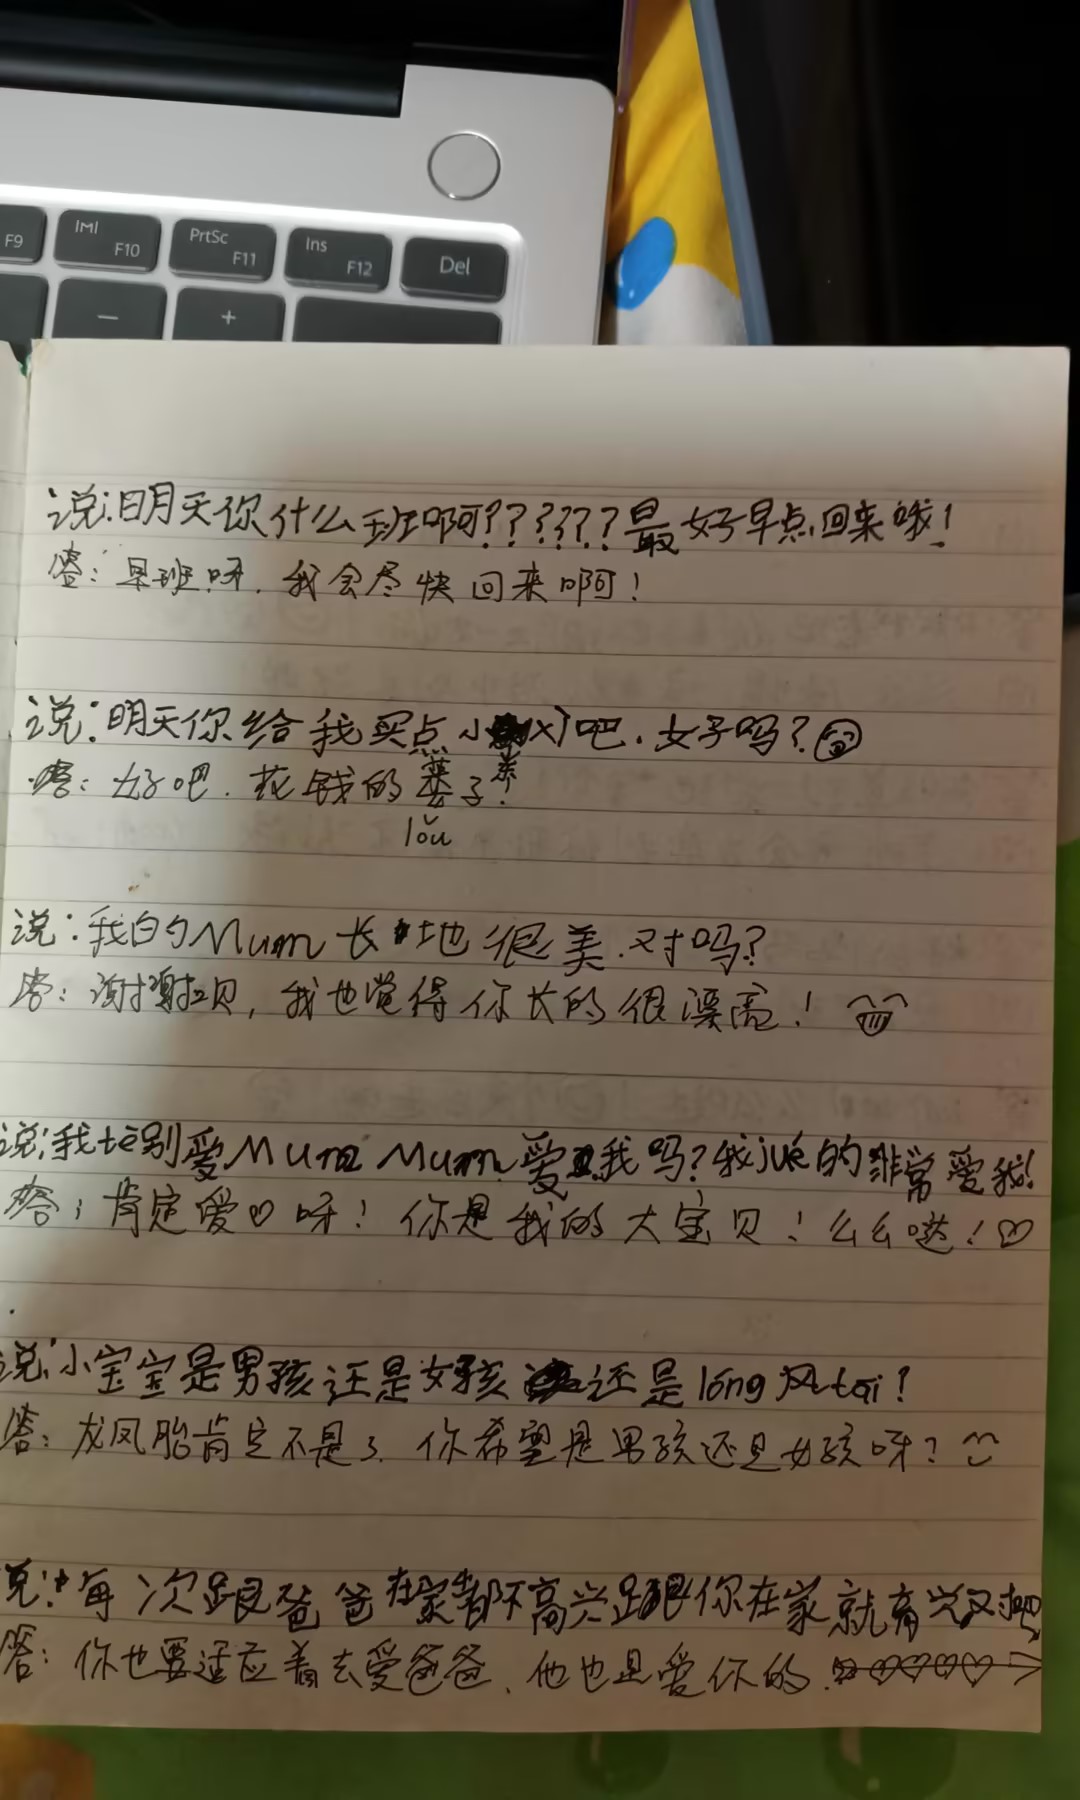 F9
IMI F10
PrtSc F11
Ins F12
Del
－
+
说:明天你什么班啊??????最好早点回来哦!
答:早班呀.我会尽快回来啊!
说:明天你给我买点小吧.好吗?
答:好吧.花钱的篓子!
lǒu
说:我的Mum长地很美.对吗?
答:谢谢宝贝,我也觉得你长的很漂亮!
说:我tè别爱Mum Mum爱我吗?我jué的非常爱我!
答:肯定爱♡呀!你是我的大宝贝!么么哒!♡
说:小宝宝是男孩还是女孩还是lóng凤tai?
答:龙凤胎肯定不是了.你希望是男孩还是女孩呀?
说:每次跟爸爸在家都不高兴跟你在家就高兴对吧
答:你也要适应着去爱爸爸.他也是爱你的.♡♡♡♡